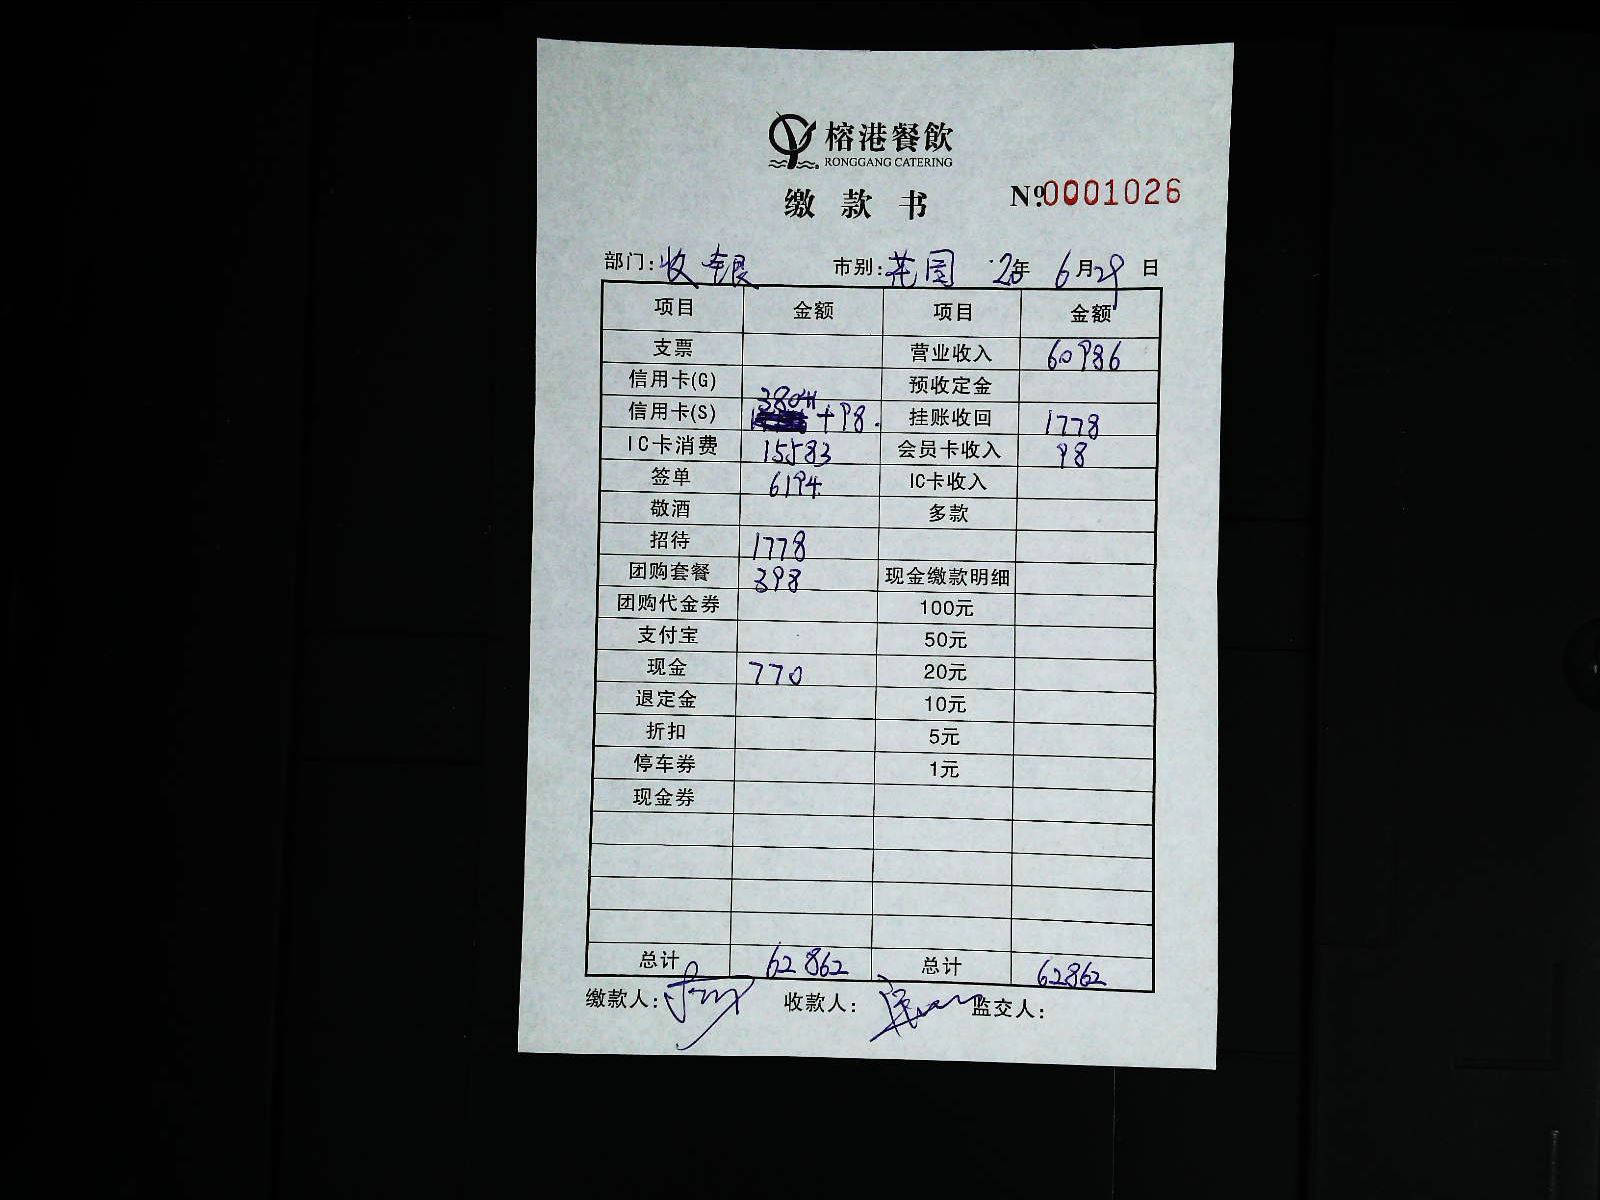 榕港餐飲
RONGGANG CATERING
缴款书 №0001026
部门: 收银 市别: 花园 20年 6月29日
项目 金额 项目 金额
支票 营业收入 60986
信用卡(G) 预收定金
信用卡(S) 38041+98. 挂账收回 1778
IC卡消费 15583 会员卡收入 98
签单 6194 IC卡收入
敬酒 多款
招待 1778
团购套餐 398 现金缴款明细
团购代金券 100元
支付宝 50元
现金 770 20元
退定金 10元
折扣 5元
停车券 1元
现金券
总计 62862 总计 62862
缴款人: 收款人: 监交人: